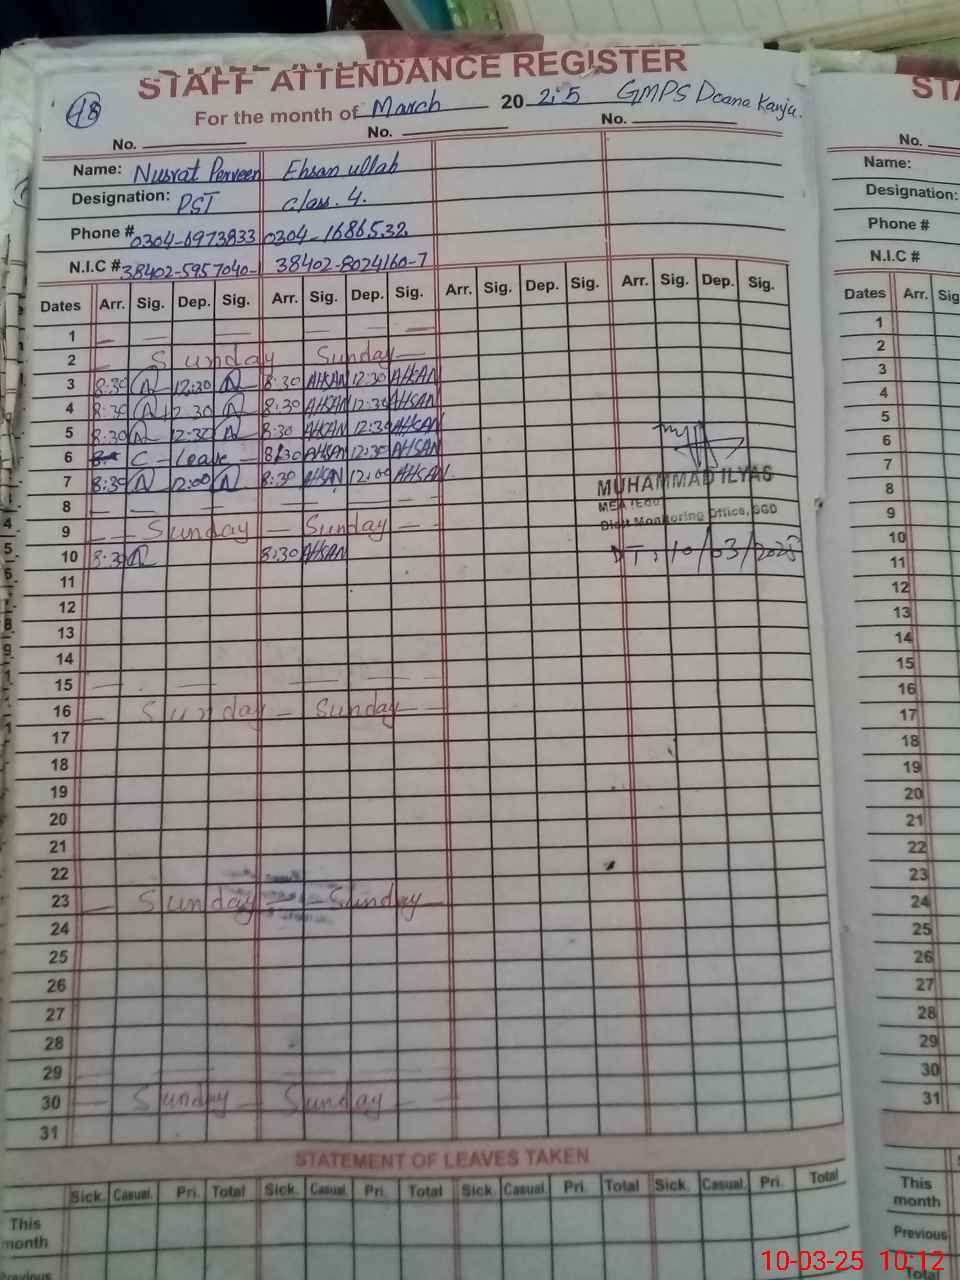 STAFF ATTENDANCE REGISTER
48 For the month of March 2025 GMPS Deana Kanju.
No. No. No.
Name: Nusrat Perveen Ehsan ullah
Designation: PST class. 4.
Phone # 0304-6973833 0304-1686532
N.I.C # 38402-5957040- 38402-8024160-7
Dates Arr. Sig. Dep. Sig. Arr. Sig. Dep. Sig. Arr. Sig. Dep. Sig. Arr. Sig. Dep. Sig.
1 — — — — — —
2 — Sunday Sunday —
3 8:30 N 12:30 N 8:30 AHSAN 12:30 AHSAN
4 8:30 N 12:30 N 8:30 AHSAN 12:30 AHSAN
5 8:30 N 12:30 N 8:30 AHSAN 12:30 AHSAN
6 C - Leave 8:30 AHSAN 12:30 AHSAN
7 8:30 N 12:00 N 8:30 AHSAN 12:00 AHSAN
MUHAMMAD ILYAS
8 — — — — — —
MEA (Edu
9 — — Sunday — Sunday — —
Distt Monitoring Office, SGD
10 8:30 N 8:30 AHSAN
DT: 10/03/2025
11
12
13
14
15 — — — — — —
16 — Sunday — Sunday — —
17
18
19
20
21
22
23 — Sunday — Sunday —
24
25
26
27
28
29 — — — — — —
30 — Sunday — Sunday — —
31
STATEMENT OF LEAVES TAKEN
Sick. Casual. Pri. Total Sick. Casual. Pri. Total Sick. Casual. Pri. Total Sick. Casual. Pri. Total
This
month
Previous
STA
No.
Name:
Designation:
Phone #
N.I.C #
Dates Arr. Sig
1
2
3
4
5
6
7
8
9
10
11
12
13
14
15
16
17
18
19
20
21
22
23
24
25
26
27
28
29
30
31
This
month
Previous
Total
10-03-25 10:12